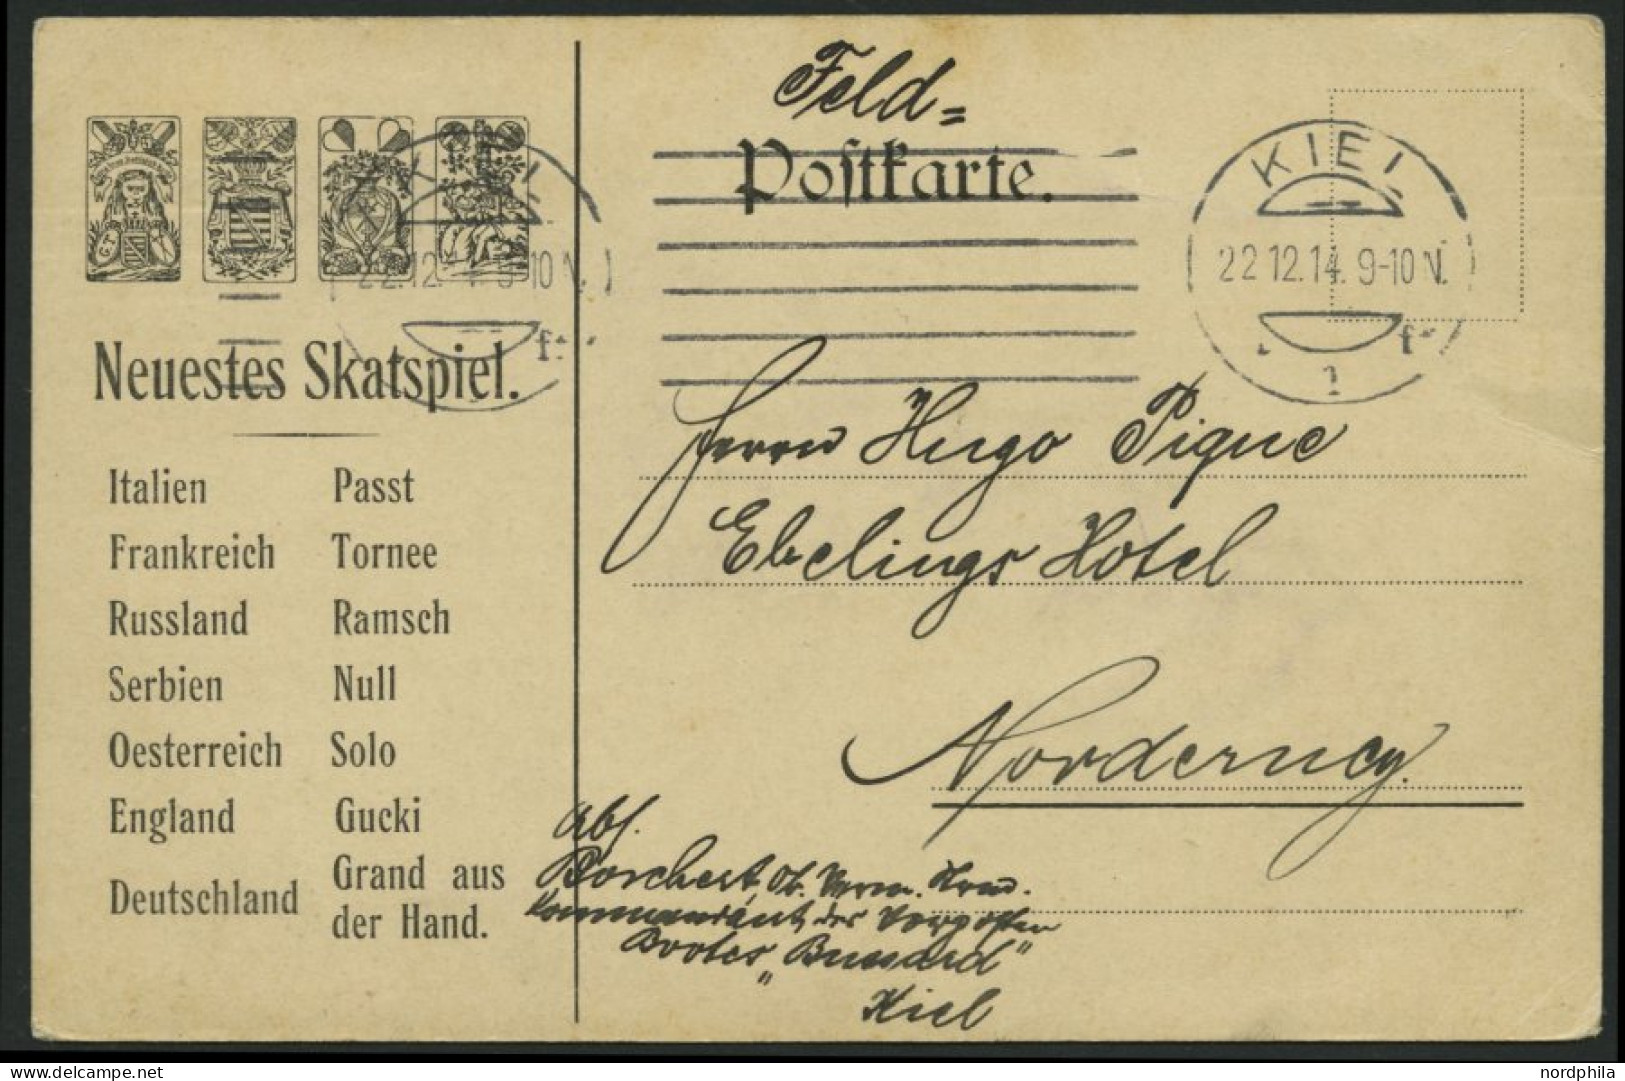 Feld=
Postkarte.
KIEL
22.12.14. 9-10 V.
f
1
KIEL
22.12.14. 9-10 V.
f
Neuestes Skatspiel.
Italien Passt
Frankreich Tornee
Russland Ramsch
Serbien Null
Oesterreich Solo
England Gucki
Deutschland Grand aus
der Hand.
Herrn Hugo Pique
Ebelings Hotel
Norderney.
Abs.
Borchert, Ob.
Kommandant des Vorposten
Bootes „Bussard"
Kiel
www.delcampe.net
nordphila